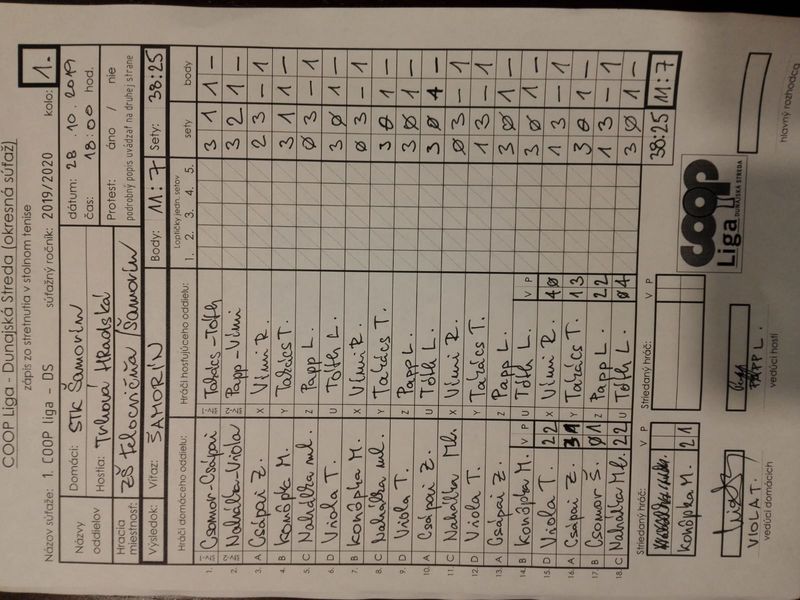 COOP Liga - Dunajská Streda (okresná súťaž)
zápis zo stretnutia v stolnom tenise
Názov súťaže: 1. COOP liga - DS súťažný ročník: 2019/2020 kolo: 1.
Názvy oddielov Domáci: STK Šamorín dátum: 28.10.2019
Hostia: Trhová Hradská čas: 18:00 hod.
Hracia miestnosť: ZŠ Telocvičňa Šamorín Protest: áno / nie
podrobný popis uvádzať na druhej strane
Výsledok: Víťaz: ŠAMORÍN Body: 11:7 Sety: 38:25
Hráči domáceho oddielu: Hráči hosťujúceho oddielu: Loptičky jedn. setov sety body
1. 2. 3. 4. 5.
1. Csomor-Csápai Takács-Tóth 3 1 1 –
2. Nahálka-Viola Papp-Vími 3 2 1 –
3. A Csápai Z. X Vími R. 2 3 – 1
4. B Konôpka M. Y Takács T. 3 1 1 –
5. C Nahálka ml. Z Papp L. 0 3 – 1
6. D Viola T. U Tóth L. 3 0 1 –
7. B Konôpka M. X Vími R. 0 3 – 1
8. C Nahálka ml. Y Takács T. 3 0 1 –
9. D Viola T. Z Papp L. 3 0 1 –
10. A Csápai Z. U Tóth L. 3 0 1 –
11. C Nahálka Ml. X Vími R. 0 3 – 1
12. D Viola T. Y Takács T. 1 3 – 1
13. A Csápai Z. Z Papp L. 3 0 1 –
14. B Konôpka M. V P U Tóth L. V P 3 0 1 –
15. D Viola T. 2 2 X Vími R. 4 0 1 3 – 1
16. A Csápai Z. 3 1 Y Takács T. 1 3 3 0 1 –
17. B Csomor Š. 0 1 Z Papp L. 2 2 1 3 – 1
18. C Nahálka Ml. 2 2 U Tóth L. 0 4 3 0 1 –
Striedaný hráč: V P Striedaný hráč: V P 38:25 11:7
Konôpka M. 2 1
COOP Liga DUNAJSKÁ STREDA
VIOLA T. PAPP L.
vedúci domácich vedúci hostí hlavný rozhodca